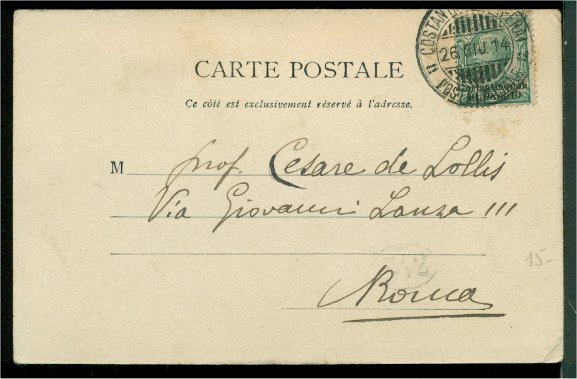 CARTE POSTALE
Ce côté est exclusivement réservé à l'adresse.
M Prof. Cesare de Lollis
Via Giovanni Lanza 111
Roma
26 GIU 14
15-